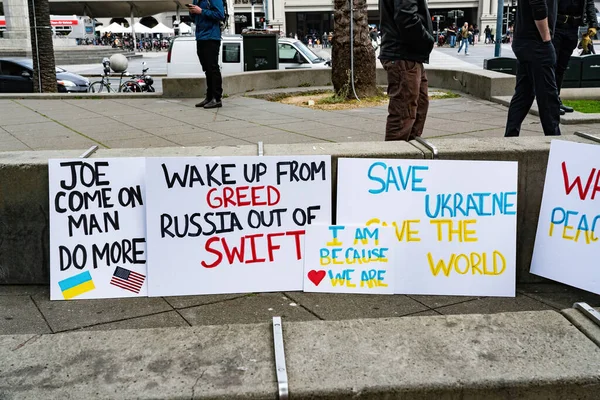 JOE
COME ON
MAN
DO MORE
WAKE UP FROM
GREED
RUSSIA OUT OF
SWIFT
I AM
BECAUSE
WE ARE
SAVE
UKRAINE
SAVE THE
WORLD
PEAC